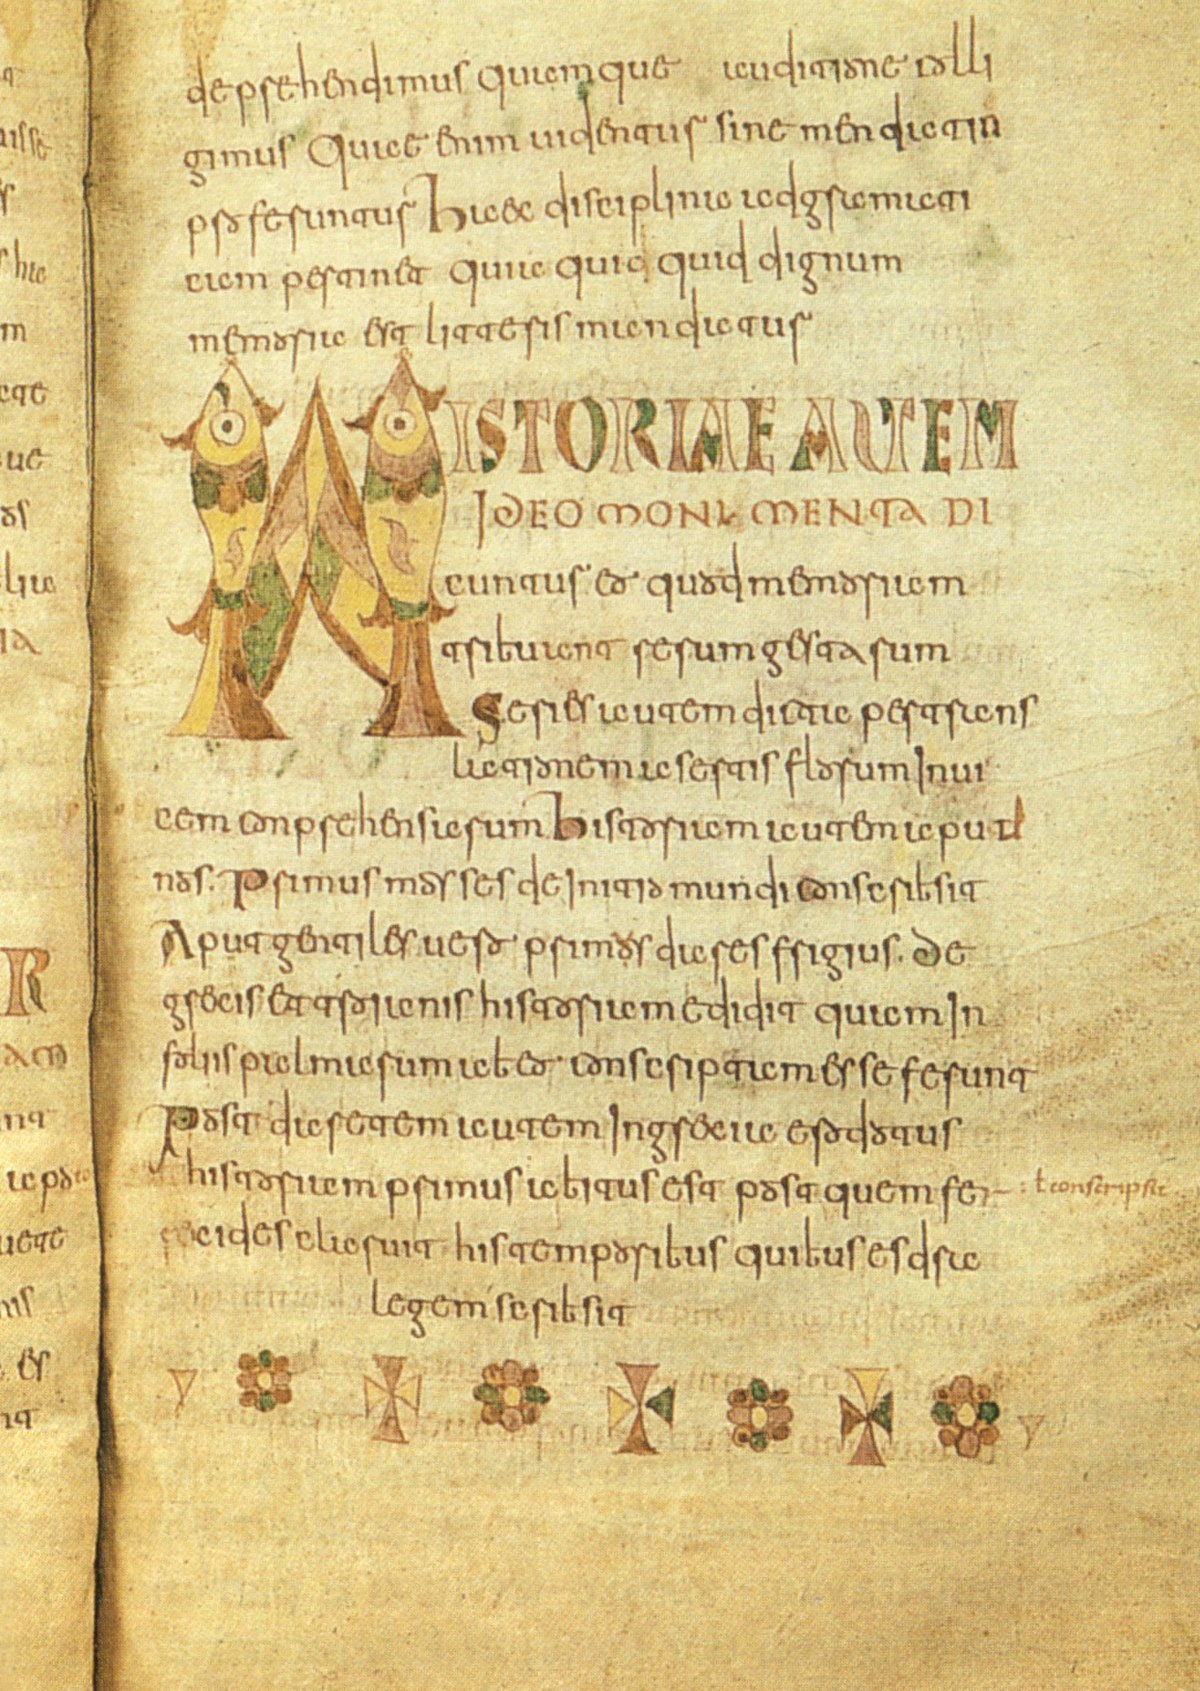 deprehendimus quamque auditione colli
gimus Quae enim uidentur sine mendacio
proferuntur Haec disciplina ad gramati
cam pertinet quia quic quid dignum
memoria est litteris mandatur
HISTORIAE AUTEM
IDEO MONIMENTA DI
cuntur eo quod memoriam
tribuant rerum gestarum
Series autem dicta per trans
lationem a sertis florum Inui
cem conprehensarum Historiam autem aput
nos. Primus moyses de Initio mundi conscribsit
Aput gentiles uero primos dares frigius. De
grecis et troianis historiam edidit quam In
foliis palmarum ab eo conscriptam esse ferunt
Post daretem autem In grecia erodotus
historiam primus abitus est post quem fe
recides claruit his temporibus quibus esdra
legem scribsit